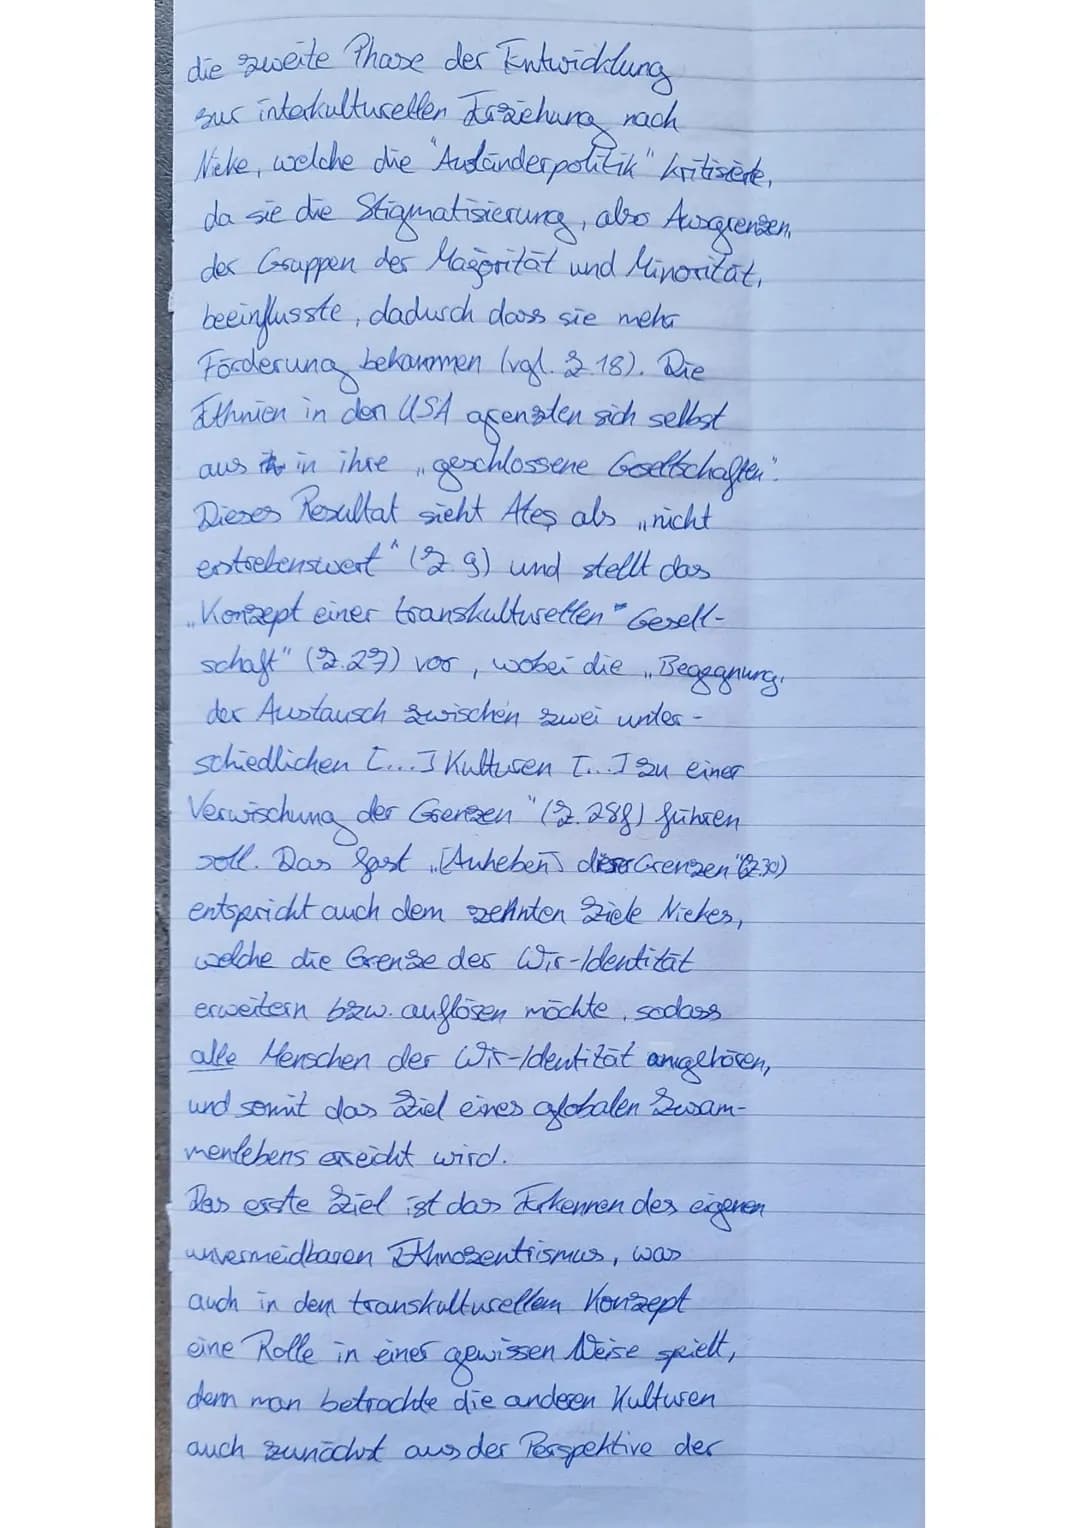 die zweite Phase der Entwicklung
zur interkulturellen Erziehung nach
Nieke, welche die "Ausländerpolitik" kritisierte,
da sie die Stigmatisierung, also Ausgrenzen,
der Gruppen der Majorität und Minorität,
beeinflusste, dadurch dass sie mehr
Förderung bekammen (vgl. Z. 18). Die
Ethnien in den USA grenzten sich selbst
aus in ihre „geschlossene Gesellschaften".
Dieses Resultat sieht Ateş als „nicht
erstrebenswert" (Z. 9) und stellt das
„Konzept einer transkulturellen Gesell-
schaft" (Z. 27) vor, wobei die „Begegnung,
der Austausch zwischen zwei unter-
schiedlichen [...] Kulturen [...] zu einer
Verwischung der Grenzen" (Z. 28f) führen
soll. Das fast „[Auheben] dieser Grenzen" (Z. 30)
entspricht auch dem zehnten Ziele Niekes,
welche die Grenze der Wir-Identität
erweitern bzw. auflösen möchte, sodass
alle Menschen der Wir-Identität angehören,
und somit das Ziel eines globalen Zusam-
menlebens erreicht wird.
Das erste Ziel ist das Erkennen des eigenen
unvermeidbaren Ethnozentrismus, was
auch in dem transkulturellem Konzept
eine Rolle in einer gewissen Weise spielt,
denn man betrachte die anderen Kulturen
auch zunächst aus der Perspektive der